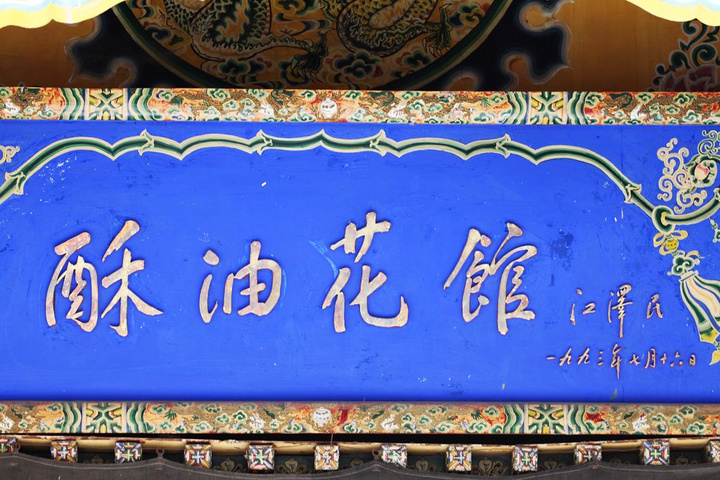 酥油花館
江澤民
一九九三年七月十六日